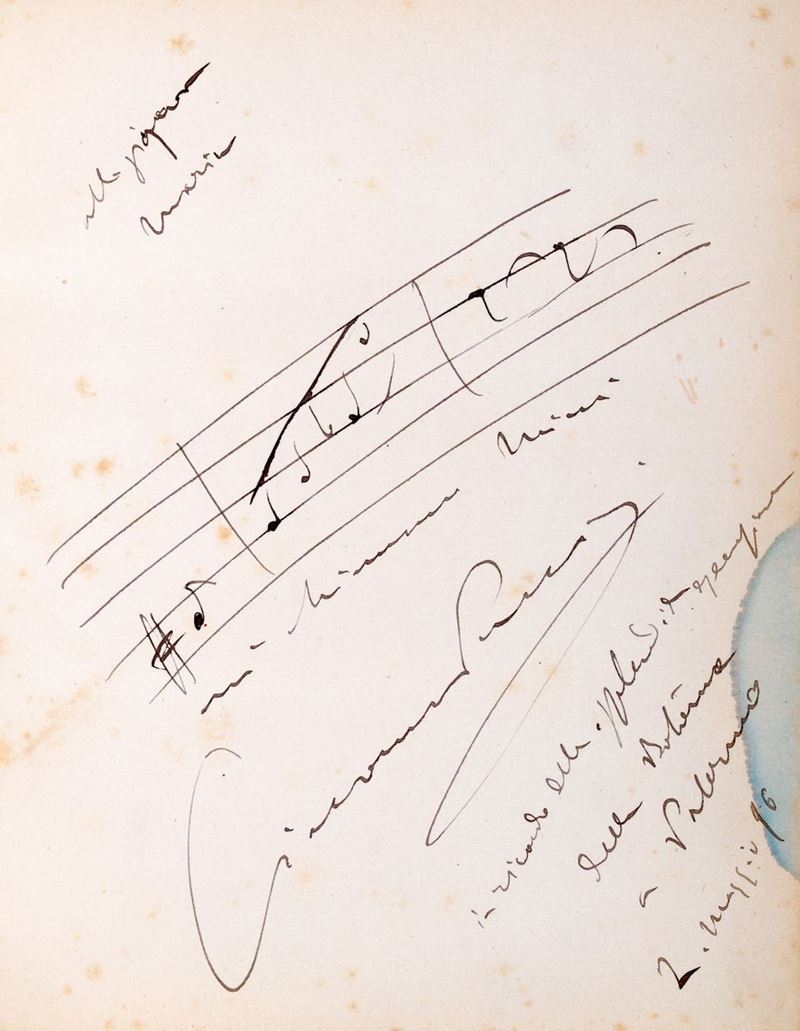 alla signora
Maria
mi chiamano Mimì
Giacomo Puccini
in ricordo della splendida
della Bohème
a Palermo
2. maggio 96